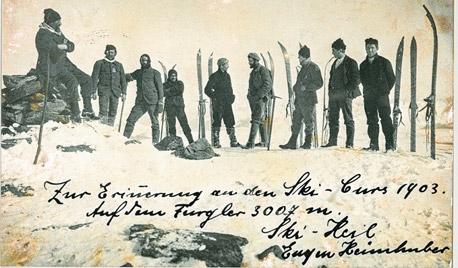 Zur Erinnerung an den Ski-Curs 1903.
Auf dem Furgler 3007 m.
Ski-Heil
Eugen Heimhuber